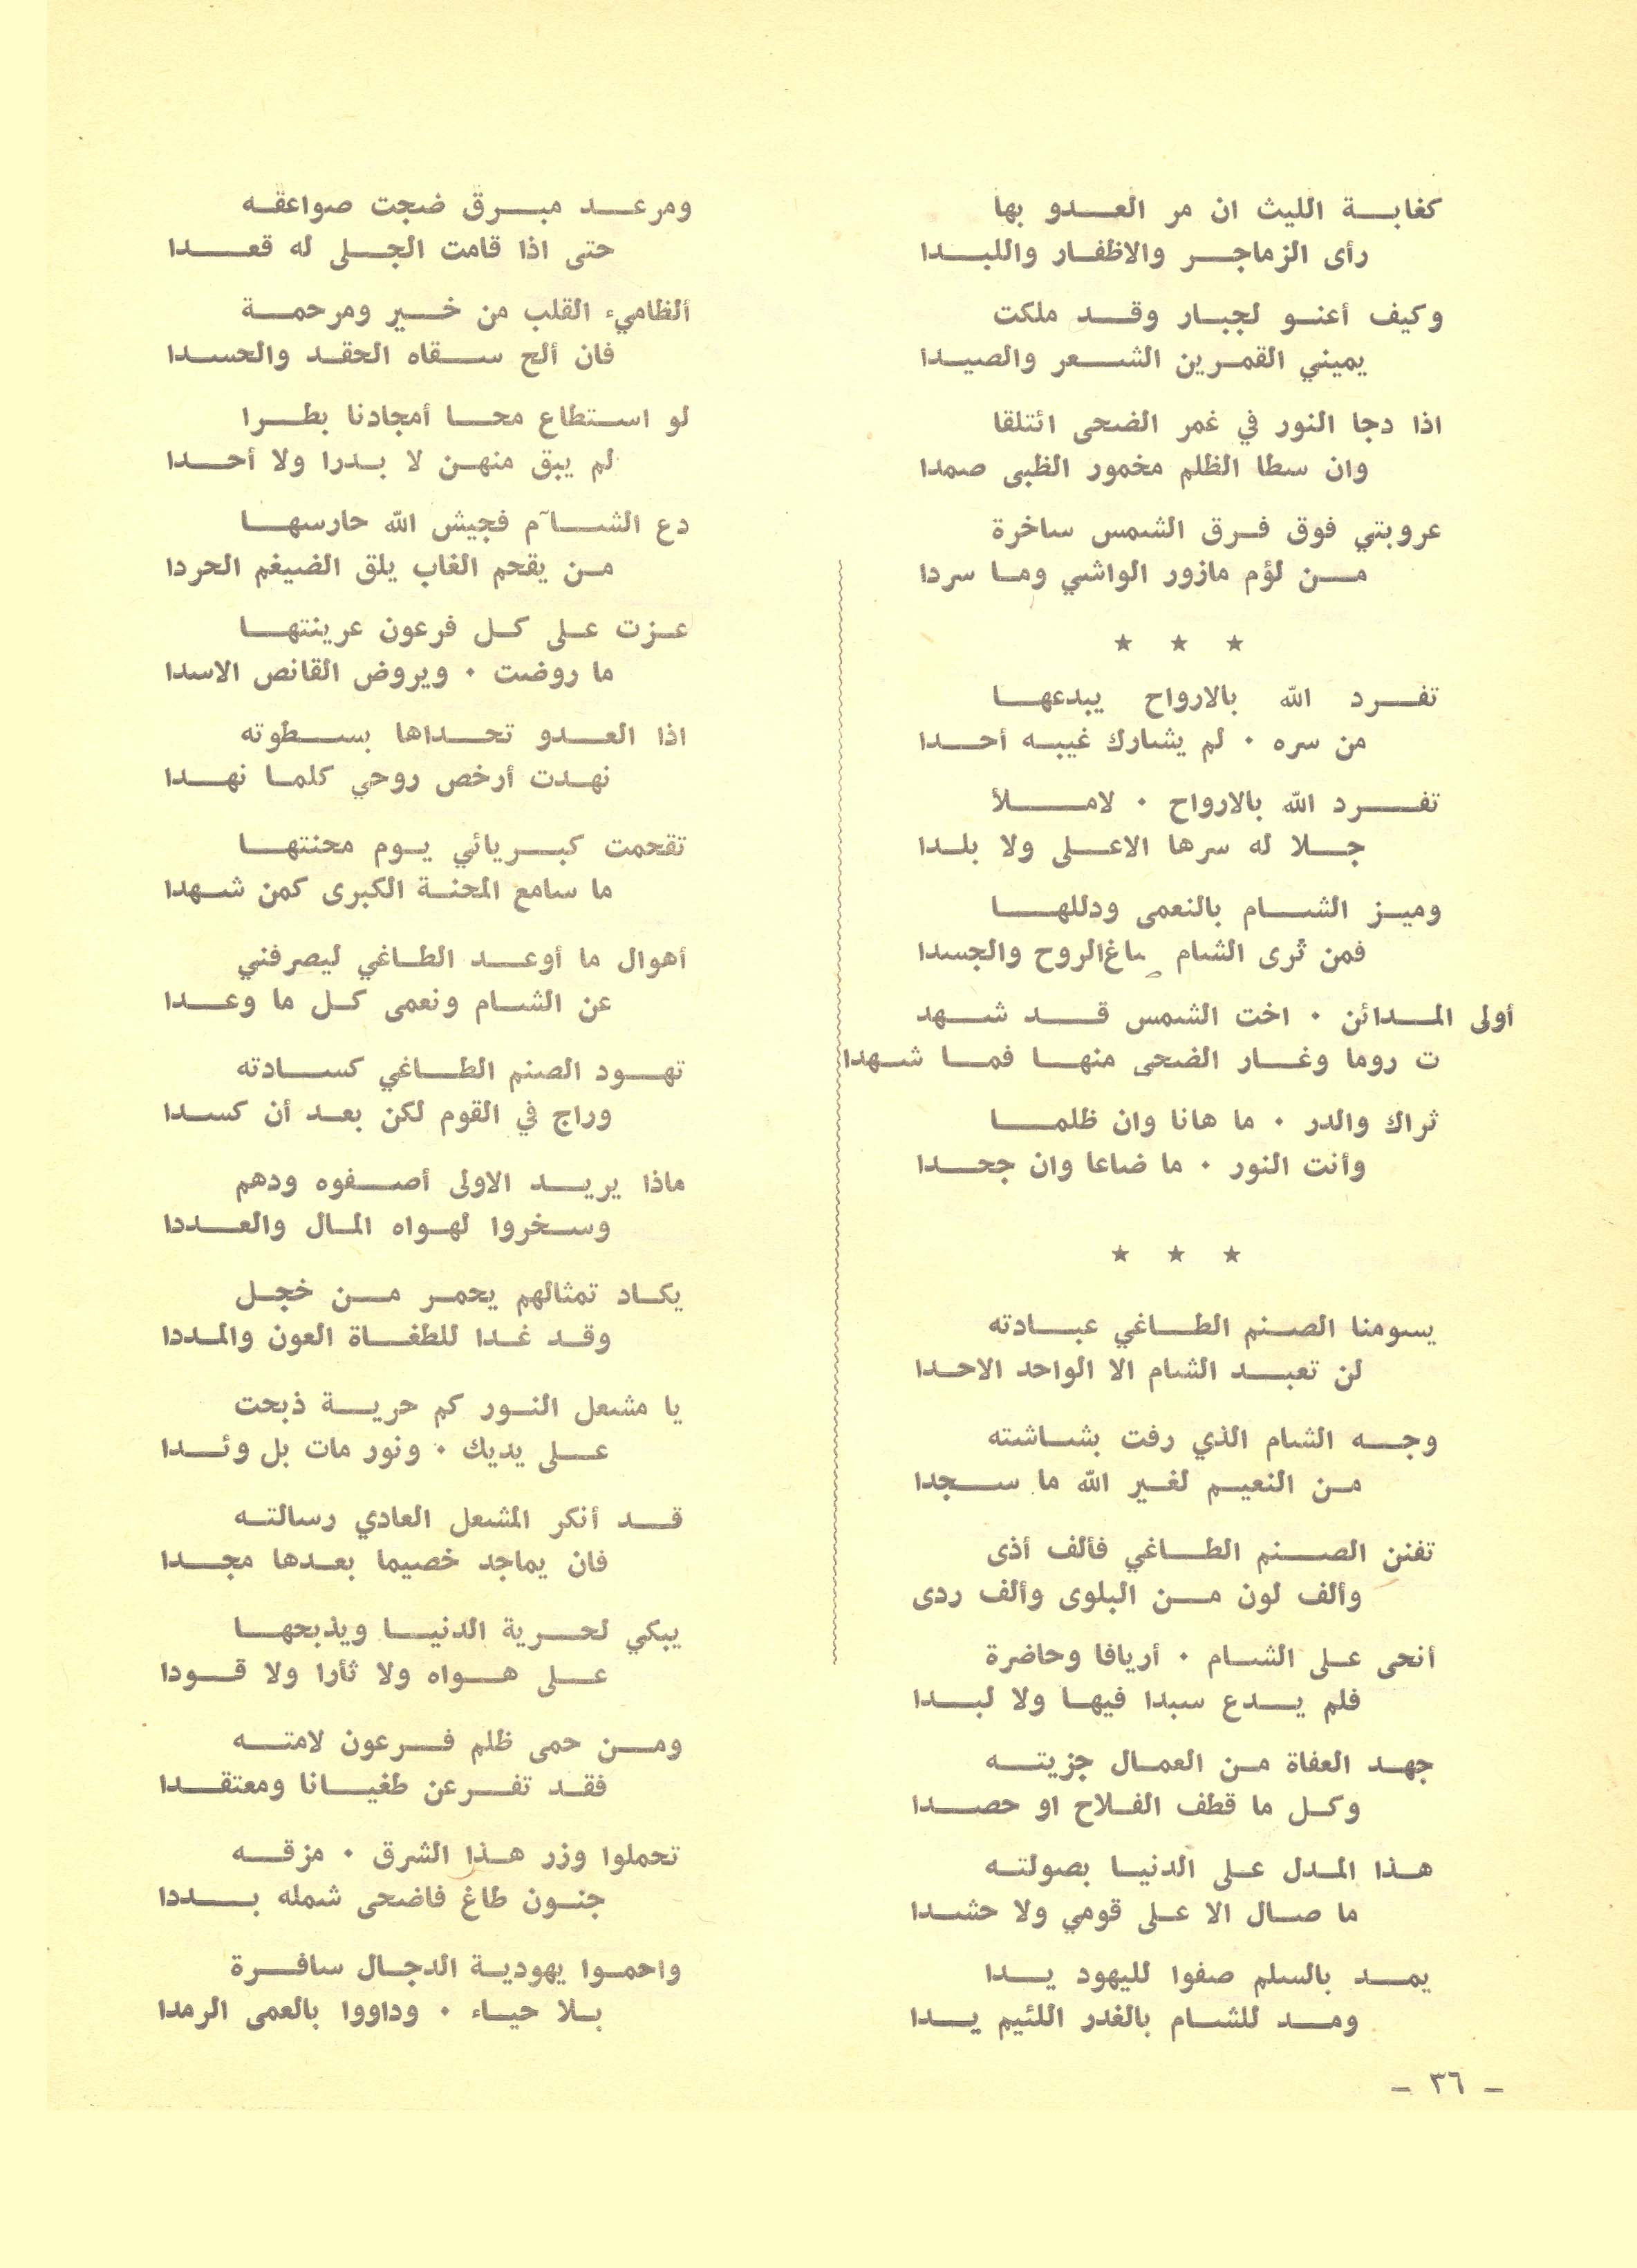 كغابة الليث ان مر العدو بها
رأى الزماجر والاظفار واللبدا
وكيف أعنو لجبار وقد ملكت
يميني القمرين الشعر والصيدا
اذا دجا النور في غمر الضحى ائتلقا
وان سطا الظلم مخمور الظبى صمدا
عروبتي فوق فرق الشمس ساخرة
من لؤم مازور الواشي وما سردا
★ ★ ★
تفرد الله بالارواح يبدعها
من سره ٠ لم يشارك غيبه أحدا
تفرد الله بالارواح ٠ لاملأ
جلا له سرها الاعلى ولا بلدا
وميز الشام بالنعمى ودللها
فمن ثرى الشام صاغ الروح والجسدا
أولى المدائن ٠ اخت الشمس قد شهد
ت روما وغار الضحى منها فما شهدا
ثراك والدر ٠ ما هانا وان ظلما
وأنت النور ٠ ما ضاعا وان جحدا
★ ★ ★
يسومنا الصنم الطاغي عبادته
لن تعبد الشام الا الواحد الاحدا
وجه الشام الذي رفت بشاشته
من النعيم لغير الله ما سجدا
تفنن الصنم الطاغي فألف أذى
وألف لون من البلوى وألف ردى
أنحى على الشام ٠ أريافا وحاضرة
فلم يدع سبدا فيها ولا لبدا
جهد العفاة من العمال جزيته
وكل ما قطف الفلاح او حصدا
هذا المدل على الدنيا بصولته
ما صال الا على قومي ولا حشدا
يمد بالسلم صفوا لليهود يدا
ومد للشام بالغدر اللئيم يدا
ومرعد مبرق ضجت صواعقه
حتى اذا قامت الجلى له قعدا
ألظاميء القلب من خير ومرحمة
فان ألح سقاه الحقد والحسدا
لو استطاع محا أمجادنا بطرا
لم يبق منهن لا بدرا ولا أحدا
دع الشآم فجيش الله حارسها
من يقحم الغاب يلق الضيغم الحردا
عزت على كل فرعون عرينتها
ما روضت ٠ ويروض القانص الاسدا
اذا العدو تحداها بسطوته
نهدت أرخص روحي كلما نهدا
تقحمت كبريائي يوم محنتها
ما سامع المحنة الكبرى كمن شهدا
أهوال ما أوعد الطاغي ليصرفني
عن الشام ونعمى كل ما وعدا
تهود الصنم الطاغي كسادته
وراج في القوم لكن بعد أن كسدا
ماذا يريد الاولى أصفوه ودهم
وسخروا لهواه المال والعددا
يكاد تمثالهم يحمر من خجل
وقد غدا للطغاة العون والمددا
يا مشعل النور كم حرية ذبحت
على يديك ٠ ونور مات بل وئدا
قد أنكر المشعل العادي رسالته
فان يماجد خصيما بعدها مجدا
يبكي لحرية الدنيا ويذبحها
على هواه ولا ثأرا ولا قودا
ومن حمى ظلم فرعون لامته
فقد تفرعن طغيانا ومعتقدا
تحملوا وزر هذا الشرق ٠ مزقه
جنون طاغ فاضحى شمله بددا
واحموا يهودية الدجال سافرة
بلا حياء ٠ وداووا بالعمى الرمدا
– ٣٦ –